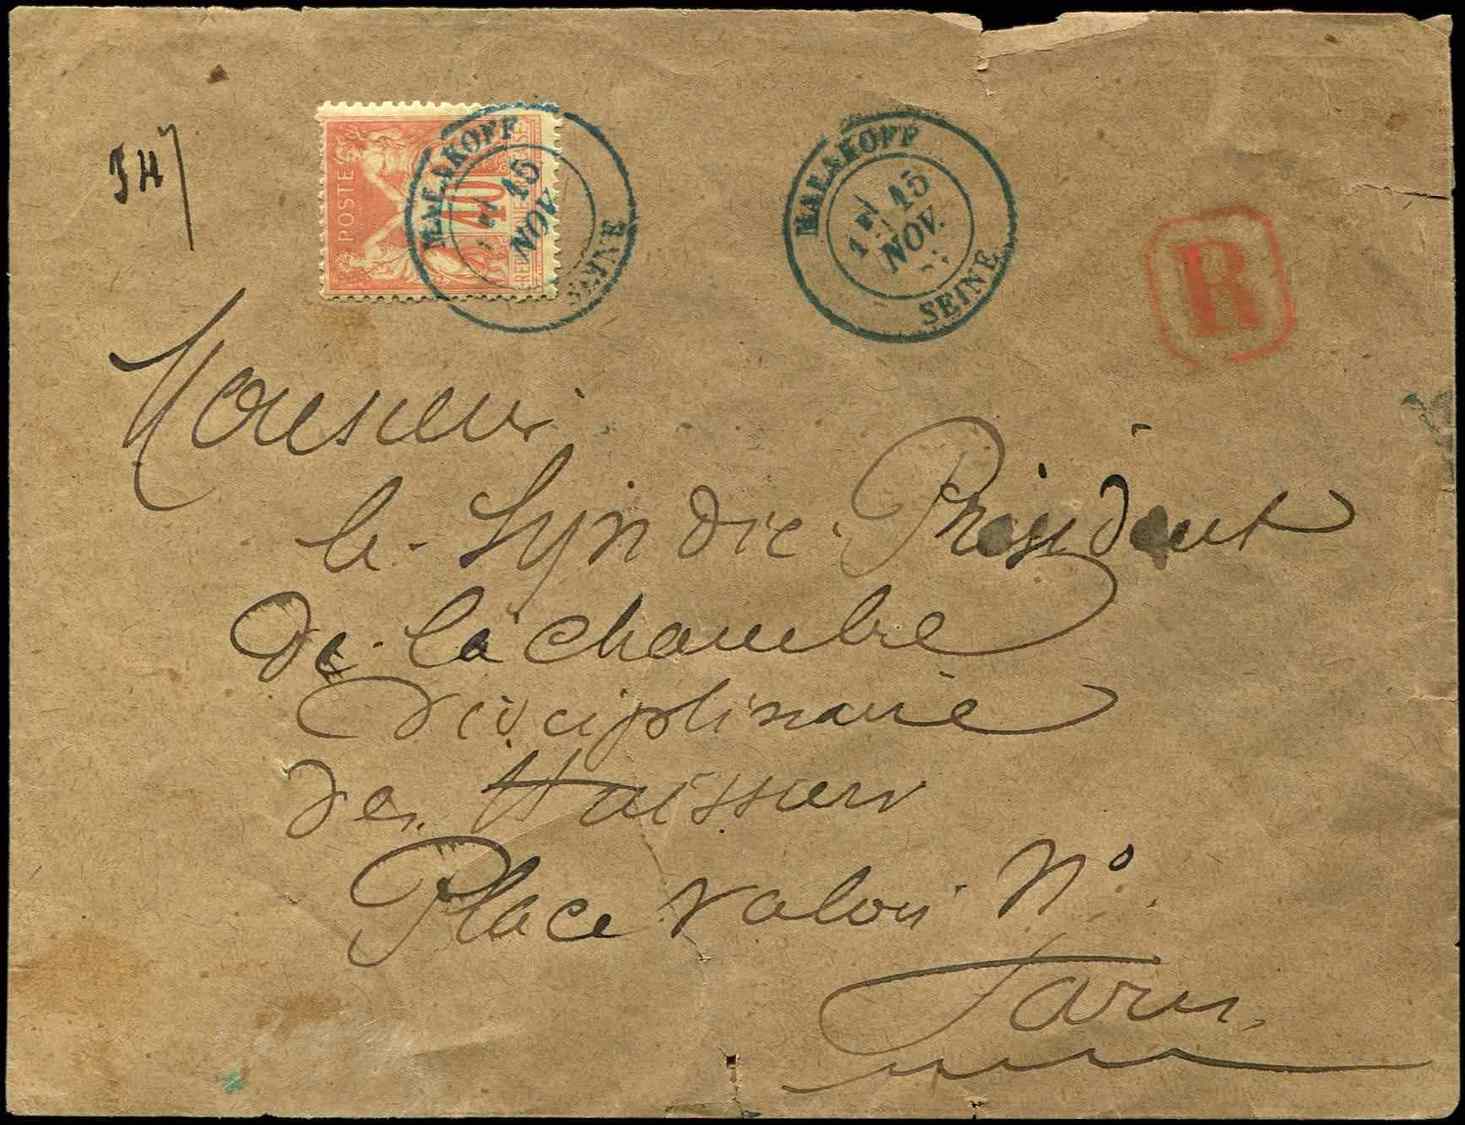 347
POSTES
40
REPUB
MALAKOFF
15
NOV.
SEINE
MALAKOFF
1E 15
NOV.
SEINE
R
Monsieur
le Syndic Président
de la chambre
disciplinaire
des Huissiers
Place Valois N°
Paris